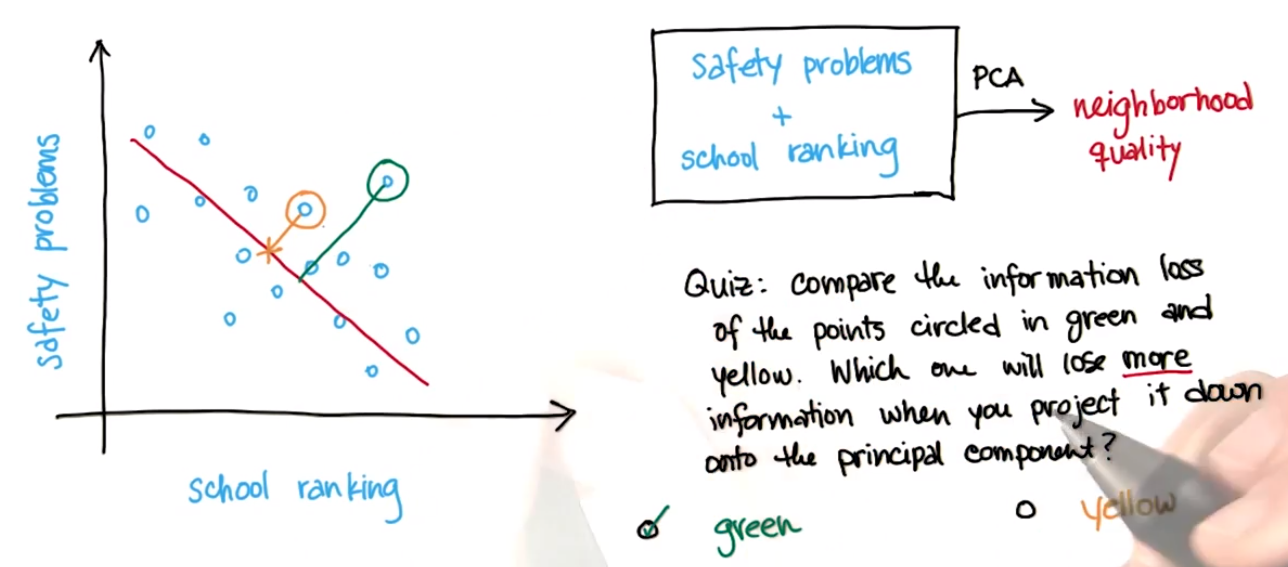 safety problems
school ranking
safety problems
+
school ranking
PCA
neighborhood
quality
Quiz: compare the information loss
of the points circled in green and
yellow. Which one will lose more
information when you project it down
onto the principal component?
green
yellow